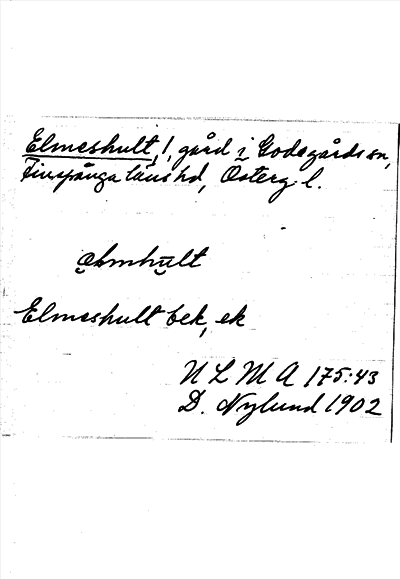 Elmeshult, 1, gård i Godegårds sn,
Finspånga läns hd, Österg. l.
Elmeshult bek, ek
N L M A 175:43
D. Nylund 1902